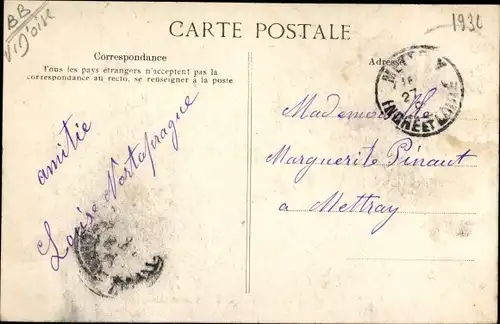 BB
CARTE POSTALE
1932
Correspondance
Tous les pays étrangers n'acceptent pas la
correspondance au recto, se renseigner à la poste
Adresse
27
INDRE ET LOIRE
Mademoiselle
Marguerite Pinaut
a Mettray
amitie
Louise